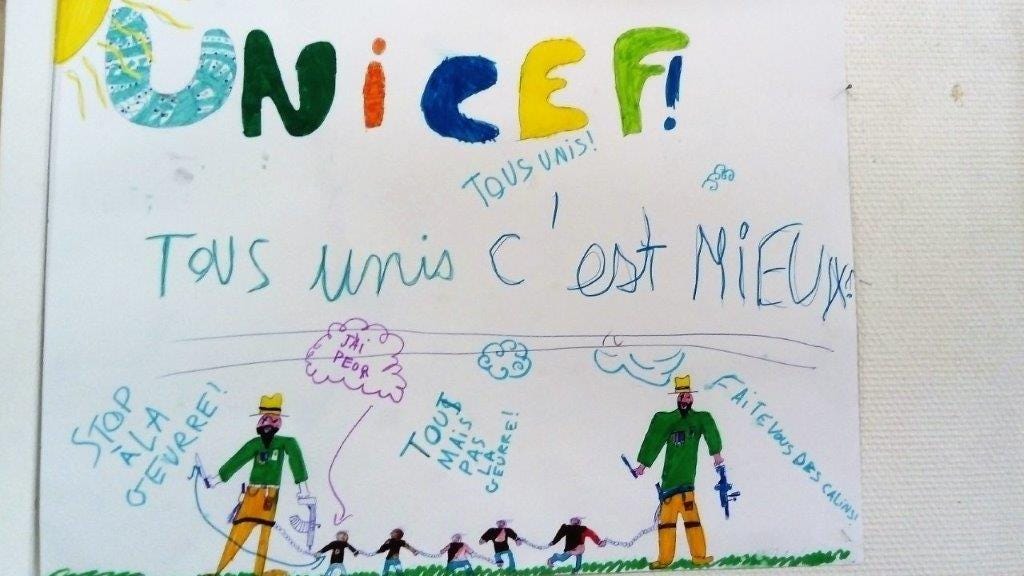 UNICEF!
TOUS UNIS!
TOUS unis c'est MiEUX!
J'AI
PEOR
STOP
À LA
GEURRE!
TOUS
MAIS
PAS
LA
GEURRE!
FAITE VOUS DES CALINS!